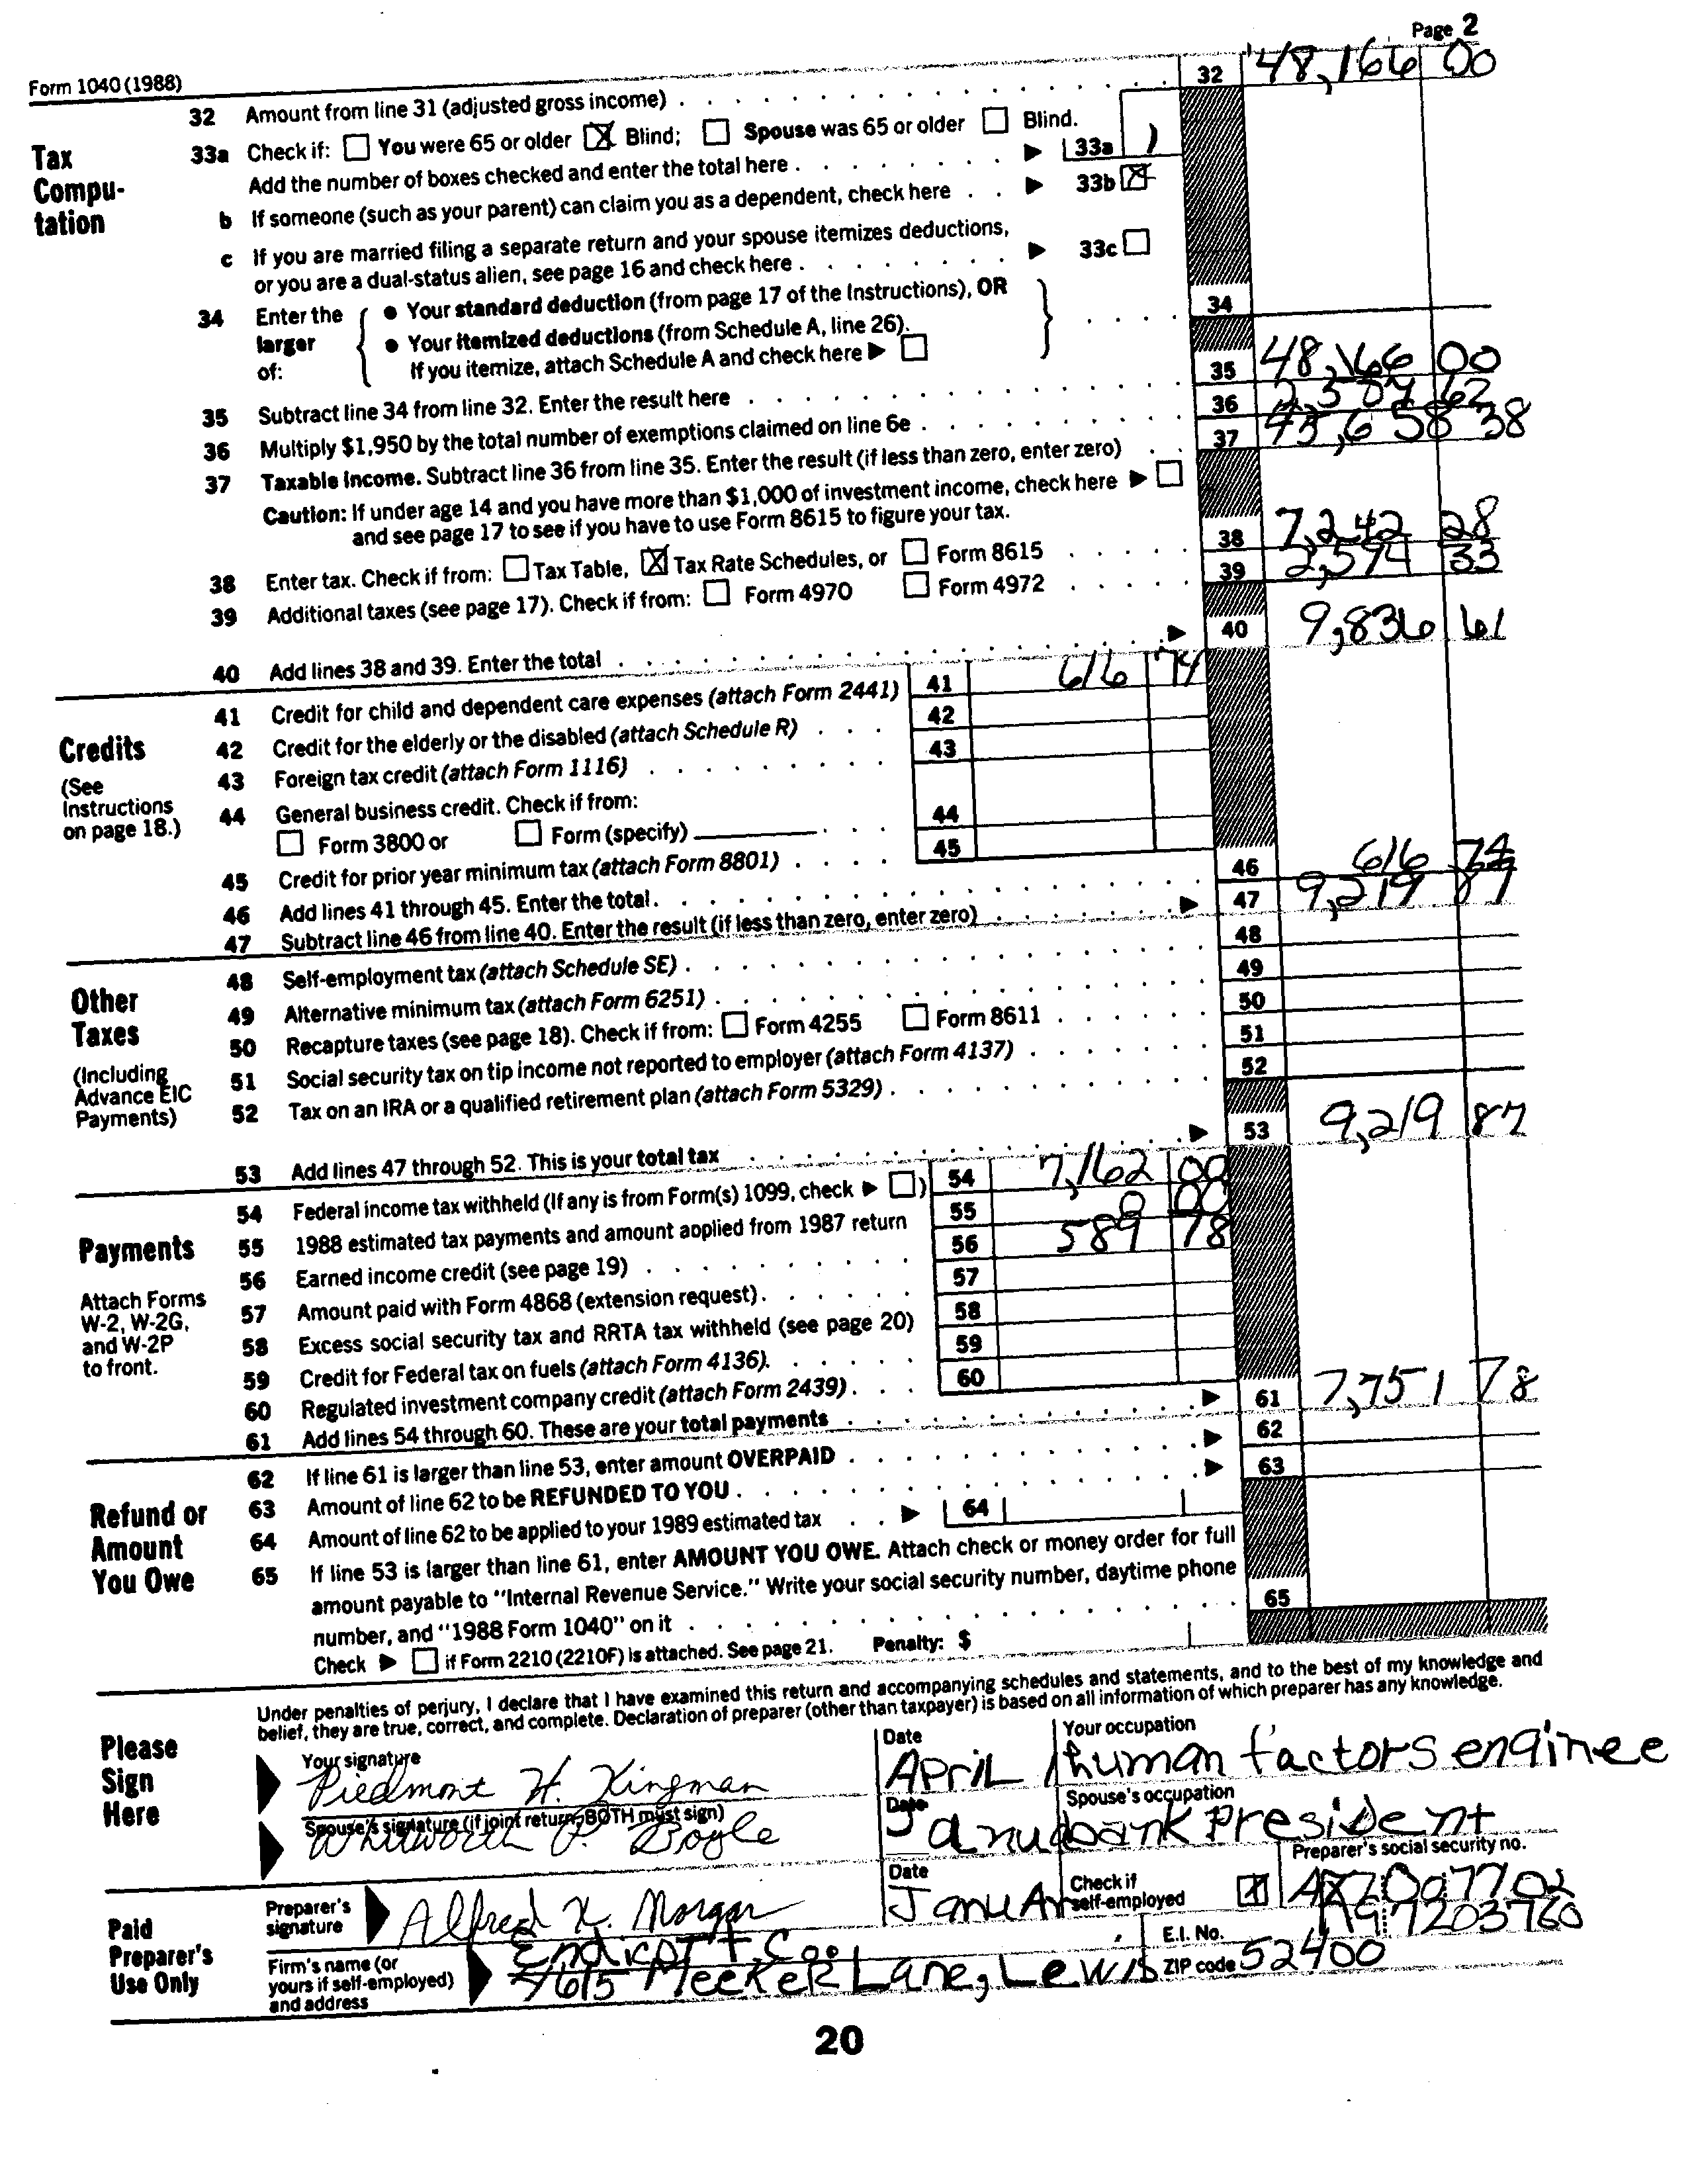 Page 2
Form 1040 (1988)
32 Amount from line 31 (adjusted gross income) 32 48,166 00
Tax Compu- tation
33a Check if: ☐ You were 65 or older ☒ Blind; ☐ Spouse was 65 or older ☐ Blind.
Add the number of boxes checked and enter the total here ▶ 33a 1
b If someone (such as your parent) can claim you as a dependent, check here ▶ 33b ☒
c If you are married filing a separate return and your spouse itemizes deductions,
or you are a dual-status alien, see page 16 and check here ▶ 33c ☐
34 Enter the larger of:
● Your standard deduction (from page 17 of the Instructions), OR
● Your itemized deductions (from Schedule A, line 26).
If you itemize, attach Schedule A and check here ▶ ☐
34
35 Subtract line 34 from line 32. Enter the result here 35 48,166 00
36 Multiply $1,950 by the total number of exemptions claimed on line 6e 36 2,507 62
37 Taxable income. Subtract line 36 from line 35. Enter the result (if less than zero, enter zero) 37 45,658 38
Caution: If under age 14 and you have more than $1,000 of investment income, check here ▶ ☐
and see page 17 to see if you have to use Form 8615 to figure your tax.
38 Enter tax. Check if from: ☐ Tax Table, ☒ Tax Rate Schedules, or ☐ Form 8615 38 7,242 28
39 Additional taxes (see page 17). Check if from: ☐ Form 4970 ☐ Form 4972 39 2,594 33
40 Add lines 38 and 39. Enter the total ▶ 40 9,836 61
Credits
(See Instructions on page 18.)
41 Credit for child and dependent care expenses (attach Form 2441) 41 616 74
42 Credit for the elderly or the disabled (attach Schedule R) 42
43 Foreign tax credit (attach Form 1116) 43
44 General business credit. Check if from:
☐ Form 3800 or ☐ Form (specify) 44
45 Credit for prior year minimum tax (attach Form 8801) 45
46 Add lines 41 through 45. Enter the total 46 616 74
47 Subtract line 46 from line 40. Enter the result (if less than zero, enter zero) ▶ 47 9,219 87
Other Taxes
(Including Advance EIC Payments)
48 Self-employment tax (attach Schedule SE) 48
49 Alternative minimum tax (attach Form 6251) 49
50 Recapture taxes (see page 18). Check if from: ☐ Form 4255 ☐ Form 8611 50
51 Social security tax on tip income not reported to employer (attach Form 4137) 51
52 Tax on an IRA or a qualified retirement plan (attach Form 5329) 52
53 Add lines 47 through 52. This is your total tax ▶ 53 9,219 87
Payments
Attach Forms W-2, W-2G, and W-2P to front.
54 Federal income tax withheld (If any is from Form(s) 1099, check ▶ ☐) 54 7,162 00
55 1988 estimated tax payments and amount applied from 1987 return 55 0 00
56 Earned income credit (see page 19) 56 589 78
57 Amount paid with Form 4868 (extension request) 57
58 Excess social security tax and RRTA tax withheld (see page 20) 58
59 Credit for Federal tax on fuels (attach Form 4136) 59
60 Regulated investment company credit (attach Form 2439) 60
61 Add lines 54 through 60. These are your total payments ▶ 61 7,751 78
Refund or Amount You Owe
62 If line 61 is larger than line 53, enter amount OVERPAID ▶ 62
63 Amount of line 62 to be REFUNDED TO YOU ▶ 63
64 Amount of line 62 to be applied to your 1989 estimated tax ▶ 64
65 If line 53 is larger than line 61, enter AMOUNT YOU OWE. Attach check or money order for full
amount payable to "Internal Revenue Service." Write your social security number, daytime phone
number, and "1988 Form 1040" on it 65
Check ▶ ☐ if Form 2210 (2210F) is attached. See page 21. Penalty: $
Please Sign Here
Under penalties of perjury, I declare that I have examined this return and accompanying schedules and statements, and to the best of my knowledge and
belief, they are true, correct, and complete. Declaration of preparer (other than taxpayer) is based on all information of which preparer has any knowledge.
Your signature Date Your occupation
Piedmont H. Kingman April 1 human factors enginee
Spouse's signature (if joint return, BOTH must sign) Date Spouse's occupation
Whitworth P. Boyle Janu bank president
Paid Preparer's Use Only
Preparer's signature Alfred K. Morgan Date Januar Check if self-employed ☒ Preparer's social security no.
Firm's name (or yours if self-employed) and address Endicott Co. E.I. No. 197203760
4615 Meeker Lane, Lewis ZIP code 52400
20